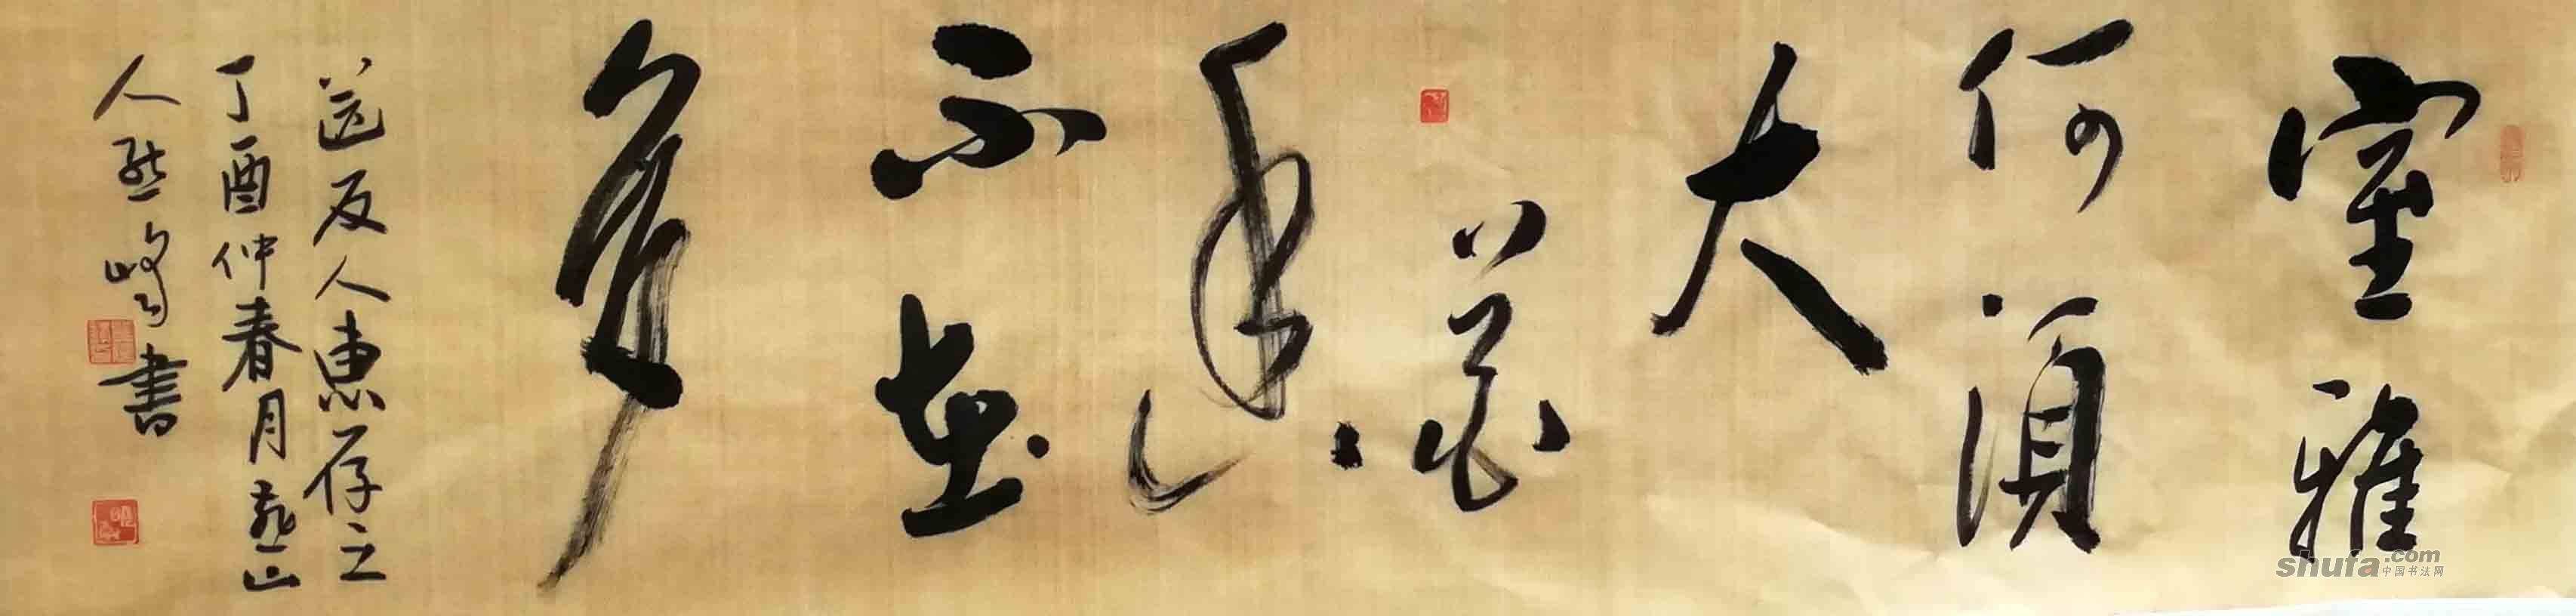 室雅
何須
大
花
香
不在
多
送友人惠存之
丁酉仲春月燕山
人熙峰書
shufa.com
中国书法网